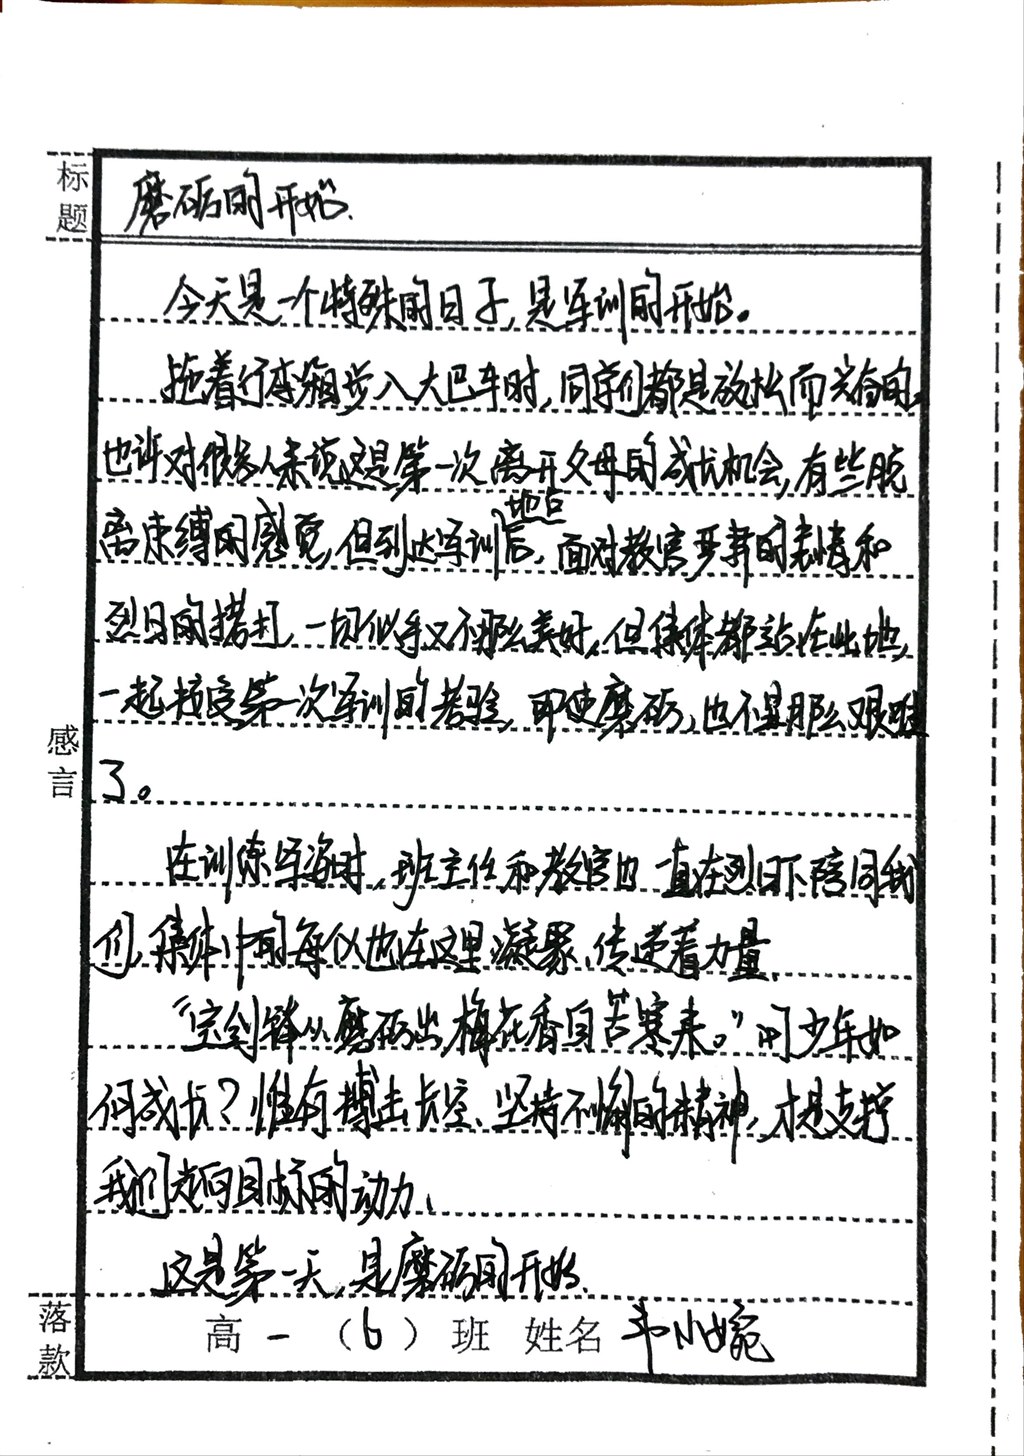 标题
磨砺的开始.
今天是一个特殊的日子,是军训的开始。
拖着行李箱步入大巴车时,同学们都是放松而兴奋的,
也许对很多人来说这是第一次离开父母的成长机会,有些脱
地点
离束缚的感觉,但到达军训后,面对教官严肃的表情和
烈日的拷打,一切似乎又不那么美好,但集体都站在此地,
一起接受第一次军训的考验,即使磨砺,也不是那么艰难
感言
了。
在训练军姿时,班主任和教官也一直在烈日下陪同我
们,集体中的每个人也在这里凝聚、传递着力量.
“宝剑锋从磨砺出,梅花香自苦寒来。”啊少年如
何成长?惟有搏击长空、坚持不懈的精神,才是支撑
我们走向目标的动力.
这是第一天,是磨砺的开始.
落款
高一(6)班 姓名 韦小婉